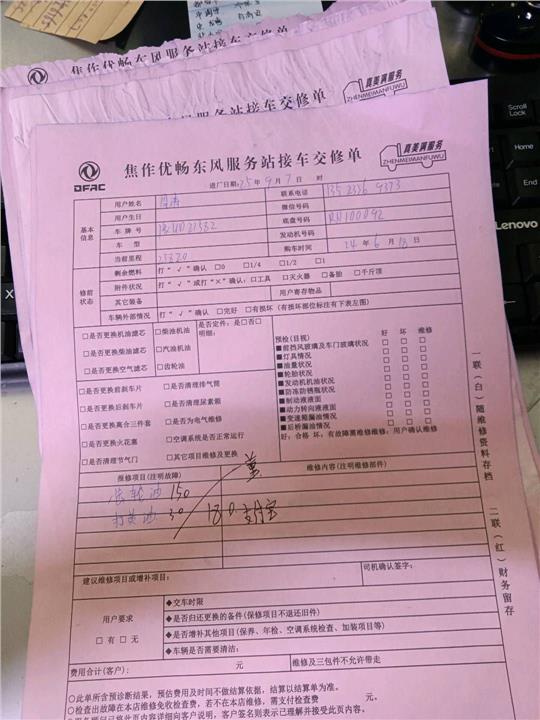 焦作优畅东风服务站接车交修单
服务站接车交修单
真美满服务
ZHENMEIMANFUWU
DFAC
焦作优畅东风服务站接车交修单
真美满服务
ZHENMEIMANFUWU
进厂日期:25年9月7日 时
基本信息
用户姓名
联系电话
用户生日
微信号码
车牌号
底盘号码
车型
发动机号
当前里程 25820
购车时间 24年6月18日
修前状态
剩余燃料 打“√”确认 □0 □1/4 □1/2 □1
附件状况 打“√”或打“×”确认:□工具 □灭火器 □备胎 □千斤顶
其它装备
用户寄存物品
车辆外部情况 打“√”确认 □完好 □有损坏(有损坏部位标注有下表左图)
□是否更换机油滤芯 □柴油机油 是否定件:是□否□
明细:
□是否更换柴油滤芯 □汽油机油
□是否更换空气滤芯 □齿轮油
□是否更换前刹车片 □是否清理排气筒
□是否更换后刹车片 □是否清理尿素箱
□是否更换离合三件套 □是否为电气维修
□是否更换火花塞 □空调系统是否正常运行
□是否清理节气门 □其它项目维修及更换
预检(目视) 好 坏 维修
■前挡风玻璃及车门玻璃状况 □ □ □
■灯具情况 □ □ □
■油量状况 □ □ □
■轮胎状况 □ □ □
■发动机机油状况 □ □ □
■防冻防锈瓶状况 □ □ □
■制动液液面 □ □ □
■动力转向液液面 □ □ □
■变速箱漏油情况 □ □ □
■后桥漏油情况 □ □ □
好:合格 坏:有故障需维修维修:用户确认维修
报修项目(注明故障)
维修内容(注明维修部件)
齿轮油 150
打黄油 30
180 支付宝
建议维修项目或增补项目:
司机确认签字:
用户要求
□有 □无
◆交车时限
◆是否归还更换的备件(保修项目不退还旧件)
◆是否增补其他项目(保养、年检、空调系统检查、加装项目等)
◆车辆是否需要清洁:
费用合计(客户): 元
维修及三包件不允许带走
○此单所含预诊断结果,预估费用及时间不做结算依据,结算以结算单为准。
○检查出故障在本店维修免收检查费,若不在本店维修,需支付检查费 元。
一联(白)随维修资料存档
二联(红)财务留存
Scroll
Lock
Lenovo